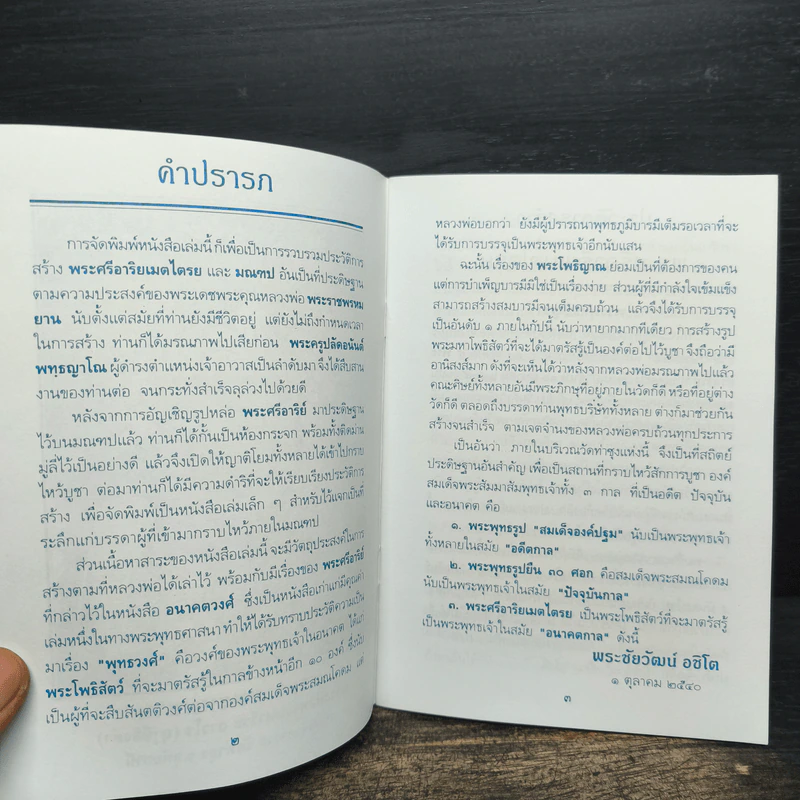 คำปรารภ
การจัดพิมพ์หนังสือเล่มนี้ ก็เพื่อเป็นการรวบรวมประวัติการ
สร้าง พระศรีอาริยเมตไตรย และ มณฑป อันเป็นที่ประดิษฐาน
ตามความประสงค์ของพระเดชพระคุณหลวงพ่อ พระราชพรหม
ยาน นับตั้งแต่สมัยที่ท่านยังมีชีวิตอยู่ แต่ยังไม่ถึงกำหนดเวลา
ในการสร้าง ท่านก็ได้มรณภาพไปเสียก่อน พระครูปลัดอนันต์
พทฺธญาโณ ผู้ดำรงตำแหน่งเจ้าอาวาสเป็นลำดับมา จึงได้สืบสาน
งานของท่านต่อ จนกระทั่งสำเร็จลุล่วงไปด้วยดี
หลังจากการอัญเชิญรูปหล่อ พระศรีอาริย์ มาประดิษฐาน
ไว้บนมณฑปแล้ว ท่านก็ได้กั้นเป็นห้องกระจก พร้อมทั้งติดม่าน
มู่ลี่ไว้เป็นอย่างดี แล้วจึงเปิดให้ญาติโยมทั้งหลายได้เข้าไปกราบ
ไหว้บูชา ต่อมาท่านก็ได้มีความดำริที่จะให้เรียบเรียงประวัติการ
สร้าง เพื่อจัดพิมพ์เป็นหนังสือเล่มเล็ก ๆ สำหรับไว้แจกเป็นที่
ระลึกแก่บรรดาผู้ที่เข้ามากราบไหว้ภายในมณฑป
ส่วนเนื้อหาสาระของหนังสือเล่มนี้ จะมีวัตถุประสงค์ในการ
สร้างตามที่หลวงพ่อได้เล่าไว้ พร้อมกับมีเรื่องของ พระศรีอาริย์
ที่กล่าวไว้ในหนังสือ อนาคตวงศ์ ซึ่งเป็นหนังสือเก่าแก่มีคุณค่า
เล่มหนึ่งในทางพระพุทธศาสนา ทำให้ได้ทราบประวัติความเป็น
มาเรื่อง "พุทธวงศ์" คือวงศ์ของพระพุทธเจ้าในอนาคต ได้แก่
พระโพธิสัตว์ ที่จะมาตรัสรู้ในกาลข้างหน้าอีก ๑๐ องค์ ซึ่งนับ
เป็นผู้ที่จะสืบสันตติวงศ์ต่อจากองค์สมเด็จพระสมณโคดม แต่
๒
หลวงพ่อบอกว่า ยังมีผู้ปรารถนาพุทธภูมิบารมีเต็มรอเวลาที่จะ
ได้รับการบรรจุเป็นพระพุทธเจ้าอีกนับแสน
ฉะนั้น เรื่องของ พระโพธิญาณ ย่อมเป็นที่ต้องการของคน
แต่การบำเพ็ญบารมีมิใช่เป็นเรื่องง่าย ส่วนผู้ที่มีกำลังใจเข้มแข็ง
สามารถสร้างสมบารมีจนเต็มครบถ้วน แล้วจึงได้รับการบรรจุ
เป็นอันดับ ๑ ภายในกัปนี้ นับว่าหายากมากทีเดียว การสร้างรูป
พระมหาโพธิสัตว์ที่จะได้มาตรัสรู้เป็นองค์ต่อไปไว้บูชา จึงถือว่ามี
อานิสงส์มาก ดังที่จะเห็นได้ว่าหลังจากหลวงพ่อมรณภาพไปแล้ว
คณะศิษย์ทั้งหลายอันมีพระภิกษุที่อยู่ภายในวัดก็ดี หรือที่อยู่ต่าง
วัดก็ดี ตลอดถึงบรรดาท่านพุทธบริษัททั้งหลาย ต่างก็มาช่วยกัน
สร้างจนสำเร็จ ตามเจตจำนงของหลวงพ่อครบถ้วนทุกประการ
เป็นอันว่า ภายในบริเวณวัดท่าซุงแห่งนี้ จึงเป็นที่สถิตย์
ประดิษฐานอันสำคัญ เพื่อเป็นสถานที่กราบไหว้สักการบูชา องค์
สมเด็จพระสัมมาสัมพุทธเจ้าทั้ง ๓ กาล ที่เป็นอดีต ปัจจุบัน
และอนาคต คือ
๑. พระพุทธรูป "สมเด็จองค์ปฐม" นับเป็นพระพุทธเจ้า
ทั้งหลายในสมัย "อดีตกาล"
๒. พระพุทธรูปยืน ๓๐ ศอก คือสมเด็จพระสมณโคดม
นับเป็นพระพุทธเจ้าในสมัย "ปัจจุบันกาล"
๓. พระศรีอาริยเมตไตรย เป็นพระโพธิสัตว์ที่จะมาตรัสรู้
เป็นพระพุทธเจ้าในสมัย "อนาคตกาล" ดังนี้
พระชัยวัฒน์ อชิโต
๑ ตุลาคม ๒๕๔๐
๓